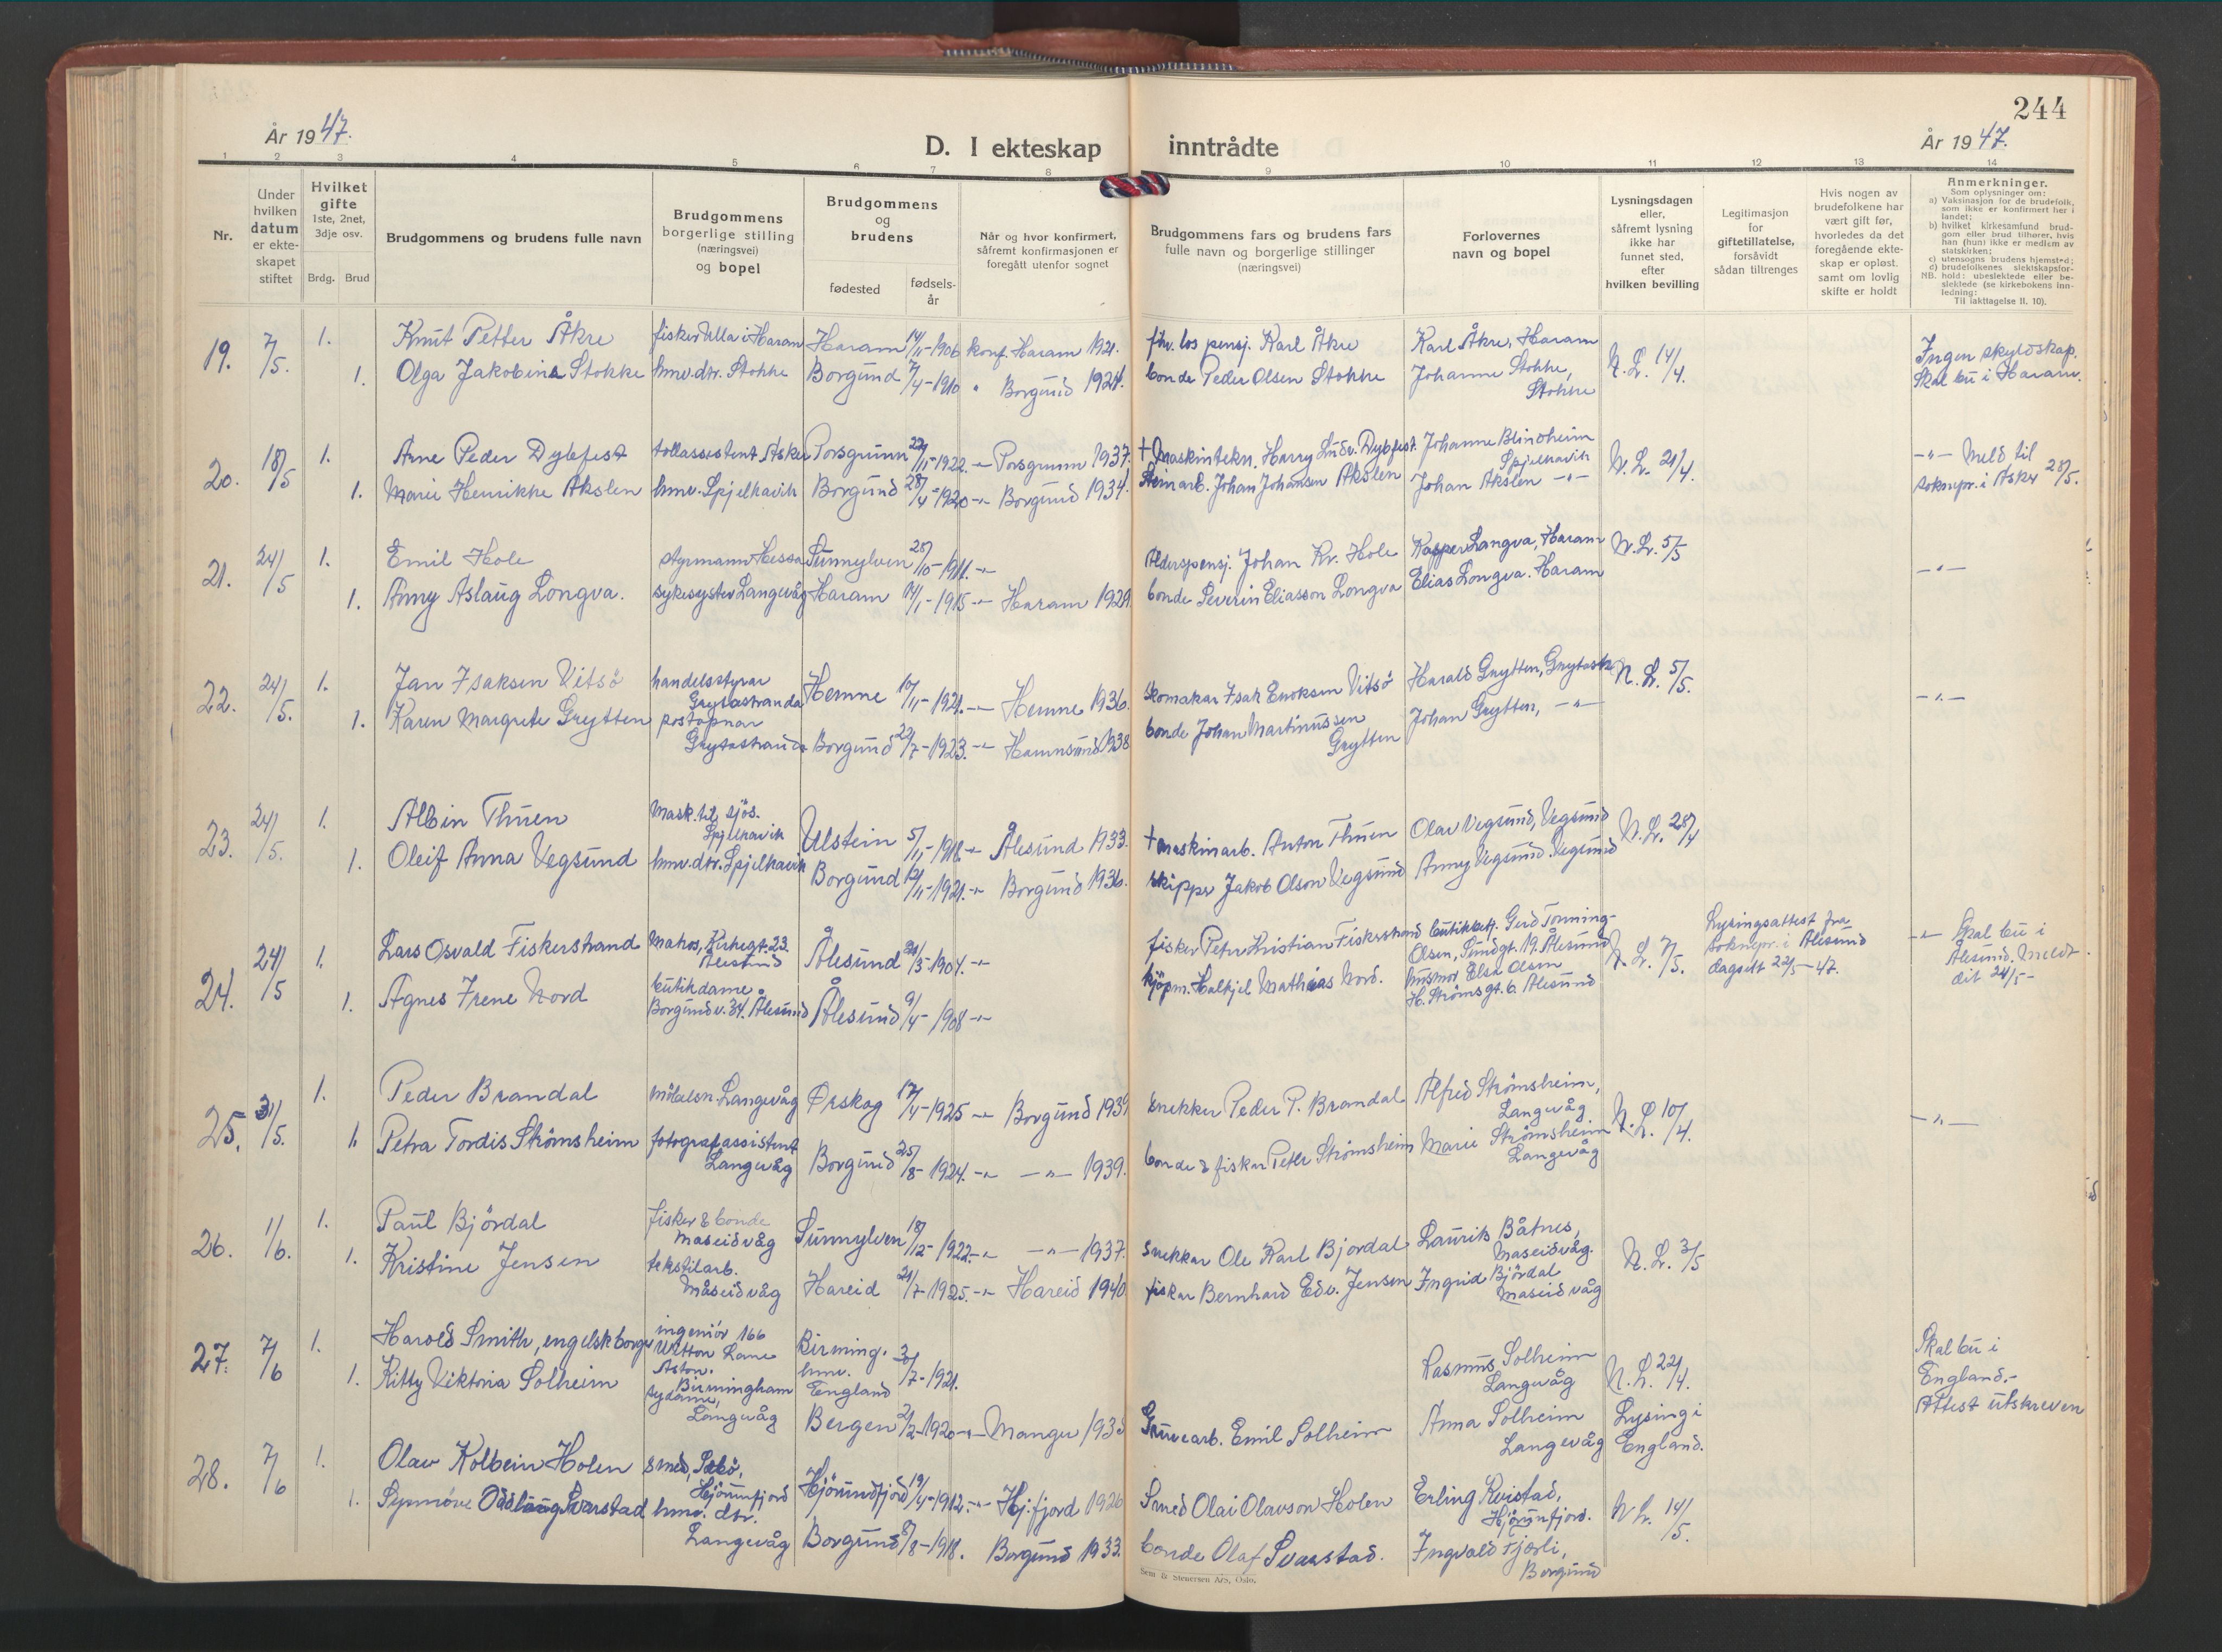 244
År 1947.
D. I ekteskap inntrådte
År 1947.
1 2 3 4 5 6 7 8 9 10 11 12 13 14
Nr.
Under hvilken datum er ekte-skapet stiftet
Hvilket gifte 1ste, 2net, 3dje osv.
Brdg. Brud
Brudgommens og brudens fulle navn
Brudgommens borgerlige stilling (næringsvei) og bopel
Brudgommens og brudens
fødested
fødsels-år
Når og hvor konfirmert, såfremt konfirmasjonen er foregått utenfor sognet
Brudgommens fars og brudens fars fulle navn og borgerlige stillinger (næringsvei)
Forlovernes navn og bopel
Lysningsdagen eller, såfremt lysning ikke har funnet sted, efter hvilken bevilling
Legitimasjon for giftetillatelse, forsåvidt sådan tiltrenges
Hvis nogen av brudefolkene har vært gift før, hvorledes da det foregående ekte-skap er opløst. samt om lovlig skifte er holdt
Anmerkninger.
Som oplysninger om:
a) Vaksinasjon for de brudefolk, som ikke er konfirmert her i landet;
b) hvilket kirkesamfund brud-gom eller brud tilhører, hvis han (hun) ikke er medlem av statskirken;
c) utensogns brudens hjemsted;
d) brudefolkenes slektskapsfor-hold: ubeslektede eller be-slektede (se kirkebokens inn-ledning:
NB.
Til iakttagelse II. 10).
19. 7/5. 1. Knut Petter Åkre fisker Ulla i Haram Haram 14/11-1906 konf. Haram 1921. fhv. los pensj. Karl Åkre Karl Åkre, Haram N. L. 14/4. Ingen skyldskap. Skal bu i Haram.
1. Olga Jakobina Stokke hmv. dtr. Stokke Borgund 7/4-1910 " Borgund 1924. bonde Peder Olsen Stokke Johanne Stokke, Stokke
20. 18/5 1. Arne Peder Dybfest tollassistent Asker Porsgrunn 22/11-1922. -"- Porsgrunn 1937. + Maskintekn. Harry Ludv. Dybfest. Johanne Blindheim Spjelkavik N. L. 21/4. -"- Meld til soknepr. i Asker 28/5.
1. Marie Henrikke Akslen hmv. Spjelkavik Borgund 28/4-1920 -"- Borgund 1934. Steinarb. Johan Johansen Akslen Johan Akslen -"-
21. 24/5 1. Emil Hole styrmann Hessa Sunnylven 28/10-1911. -"- Alderspensj. Johan Kr. Hole Kasper Langva, Haram N. L. 5/5 -"-
1. Anny Aslaug Longva. sykesyster Langevåg Haram 14/1-1915 -"- Haram 1929. bonde Severin Eliasson Longva Elias Longva. Haram
22. 24/5. 1. Jan Isaksen Vitsö handelsstyrar Grytastranda Hemne 10/11-1921. -"- Hemne 1936. Skomakar Isak Enoksen Vitsö Harald Grytten, Grytastr. N. L. 5/5. -"-
1. Karen Margrete Grytten postopnar Grytastranda Borgund 22/7-1923. -"- Hamnsund 1938 bonde Johan Martinussen Grytten Johan Grytten, -"-
23. 24/5. 1. Albin Thuen Mask. til sjös. Spjelkavik Ulstein 5/11-1918. -"- Ålesund 1933. + maskinarb. Anton Thuen Olav Vegsund, Vegsund N. L. 28/4
1. Oleif Anna Vegsund hmv. dtr. Spjelkavik Borgund 12/11-1921. -"- Borgund 1936. skipper Jakob Olson Vegsund Anny Vegsund. Vegsund
24. 24/5 1. Lars Osvald Fiskerstrand Matros, Kirkegt. 23. Ålesund Ålesund 24/3-1904. -"- fisker Petr Kristian Fiskerstrand butikkbetj. Gerd Tonning-Olsen, Sundgt. 19. Ålesund N. L. 7/5. Lysingsattest fra soknepr. i Ålesund dagsett 22/5-47. -"- Skal bu i Ålesund. Meldt dit 24/5-
1. Agnes Irene Nord butikdame Borgundv. 34. Ålesund Ålesund 9/4-1908 -"- Kjöpm. Halkjel Mathias Nord. husmor Elsa Olsen H. Strömsgt. 6. Ålesund
25. 31/5. 1. Peder Brandal Möbelsn. Langevåg Ørskog 17/4-1925 -"- Borgund 1939 snekker Peder P. Brandal Alfred Strömsheim, Langevåg. N. L. 10/4. -"-
1. Petra Tordis Strömsheim fotografassistent Langevåg Borgund 25/8-1924. -"- -"- 1939. bonde & fisker Peter Strömsheim Marie Strömsheim Langevåg
26. 1/6. 1. Paul Björdal fisker & bonde Maseidvåg Sunnylven 18/12-1922. -"- -"- 1937. Snekkar Ole Karl Bjordal Laurits Båtnes, Maseidvåg. N. L. 3/5
1. Kristine Jensen tekstilarb. Måseidvåg Hareid 21/7-1925. -"- Hareid 1940. fiskar Bernhard Edv. Jensen Ingrid Björdal Maseidvåg
27. 7/6 1. Harold Smith, engelsk borger ingeniör 166 Witton Lane Aston. Birmingham Birming. hmv. England 30/7-1921. Rasmus Solheim Langevåg N. L. 22/4. Skal bu i England.- Attest utskreven
1. Kitty Viktoria Solheim sydame, Langevåg Bergen 2/2-1920 -"- Manger 1935 Gruvearb. Emil Solheim Anna Solheim Langevåg Lysing i England.
28. 7/6 1. Olav Kolbein Holen smed, Sæbö, Hjörundfjord Hjörundfjord 19/4-1912. -"- Hj. fjord 1926 Smed Olai Olavson Holen Erling Kvistad, Hjörunfjord. N. L. 14/5.
1. Synnöve Oddlaug Svarstad hmv. dtr. Langevåg Borgund 8/8-1918. Borgund 1933. bonde Olaf Svarstad. Ingvald Fjørli, Borgund
Sem & Stenersen A/S, Oslo.